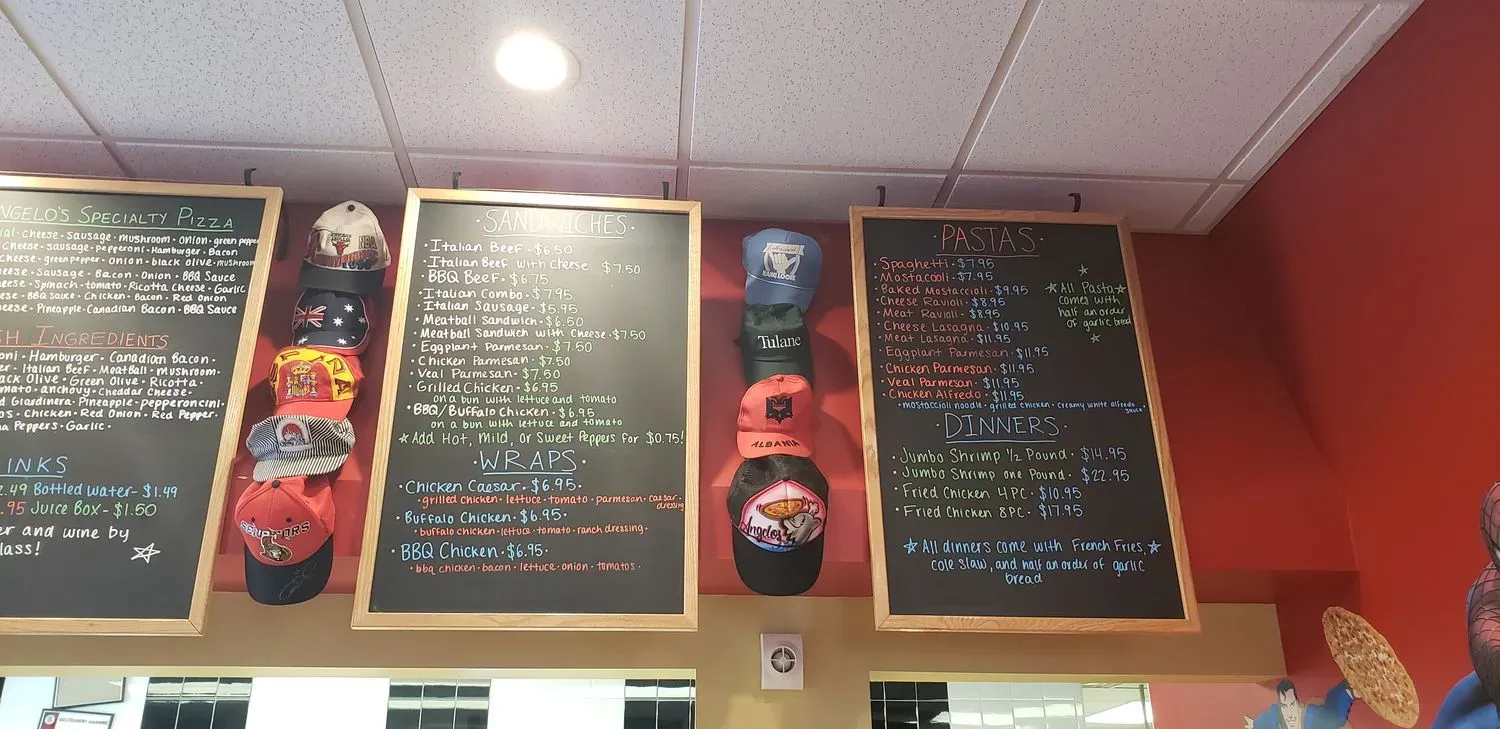 NGELO'S SPECIALTY PIZZA
ial · cheese · sausage · mushroom · onion · green pepper
cheese · sausage · pepperoni · Hamburger · Bacon
cheese · green pepper · onion · black olive · mushroom
eese · Sausage · Bacon · Onion · BBQ Sauce
eese · Spinach · tomato · Ricotta Cheese · Garlic
ese · BBQ Sauce · Chicken · Bacon · Red Onion
ese · Pineapple · Canadian Bacon · BBQ Sauce
SH INGREDIENTS
oni · Hamburger · Canadian Bacon ·
er · Italian Beef · Meatball · mushroom ·
ack Olive · Green Olive · Ricotta ·
mato · anchovy · Cheddar Cheese ·
d Giardinera · Pineapple · pepperoncini ·
os · Chicken · Red Onion · Red Pepper ·
na Peppers · Garlic ·
INKS
2.49 Bottled Water - $1.49
.95 Juice Box - $1.50
er and wine by
lass!
NBA
SPAÑA
SENATORS
· SANDWICHES ·
· Italian Beef · $6.50
· Italian Beef with Cheese $7.50
· BBQ Beef · $6.75
· Italian Combo · $7.95
· Italian Sausage · $5.95
· Meatball Sandwich · $6.50
· Meatball Sandwich with Cheese · $7.50
· Eggplant Parmesan · $7.50
· Chicken Parmesan · $7.50
· Veal Parmesan · $7.50
· Grilled Chicken · $6.95
on a bun with lettuce and tomato
· BBQ/Buffalo Chicken · $6.95
on a bun with lettuce and tomato
☆ Add Hot, Mild, or Sweet Peppers for $0.75!
· WRAPS ·
· Chicken Caesar · $6.95 ·
· grilled chicken · lettuce · tomato · parmesan · caesar · dressing
· Buffalo Chicken · $6.95 ·
· buffalo chicken · lettuce · tomato · ranch dressing ·
· BBQ Chicken · $6.95 ·
· bbq chicken · bacon · lettuce · onion · tomatos ·
HANG LOOSE
Tulane
ALBANIA
Angelos
· PASTAS ·
· Spaghetti · $7.95
· Mostaccoli · $7.95
· Baked Mostaccioli · $9.95
· Cheese Ravioli · $8.95
· Meat Ravioli · $8.95
· Cheese Lasagna · $10.95
· Meat Lasagna · $11.95
· Eggplant Parmesan · $11.95
· Chicken Parmesan · $11.95
· Veal Parmesan · $11.95
· Chicken Alfredo · $11.95
· mostaccioli noodle · grilled chicken · creamy white alfredo sauce
☆ All Pasta ☆
comes with
half an order
of garlic bread
· DINNERS ·
· Jumbo Shrimp 1/2 Pound · $14.95
· Jumbo Shrimp one Pound · $22.95
· Fried Chicken 4 PC · $10.95
· Fried Chicken 8 PC · $17.95
☆ All dinners come with French Fries, ☆
cole slaw, and half an order of garlic
bread